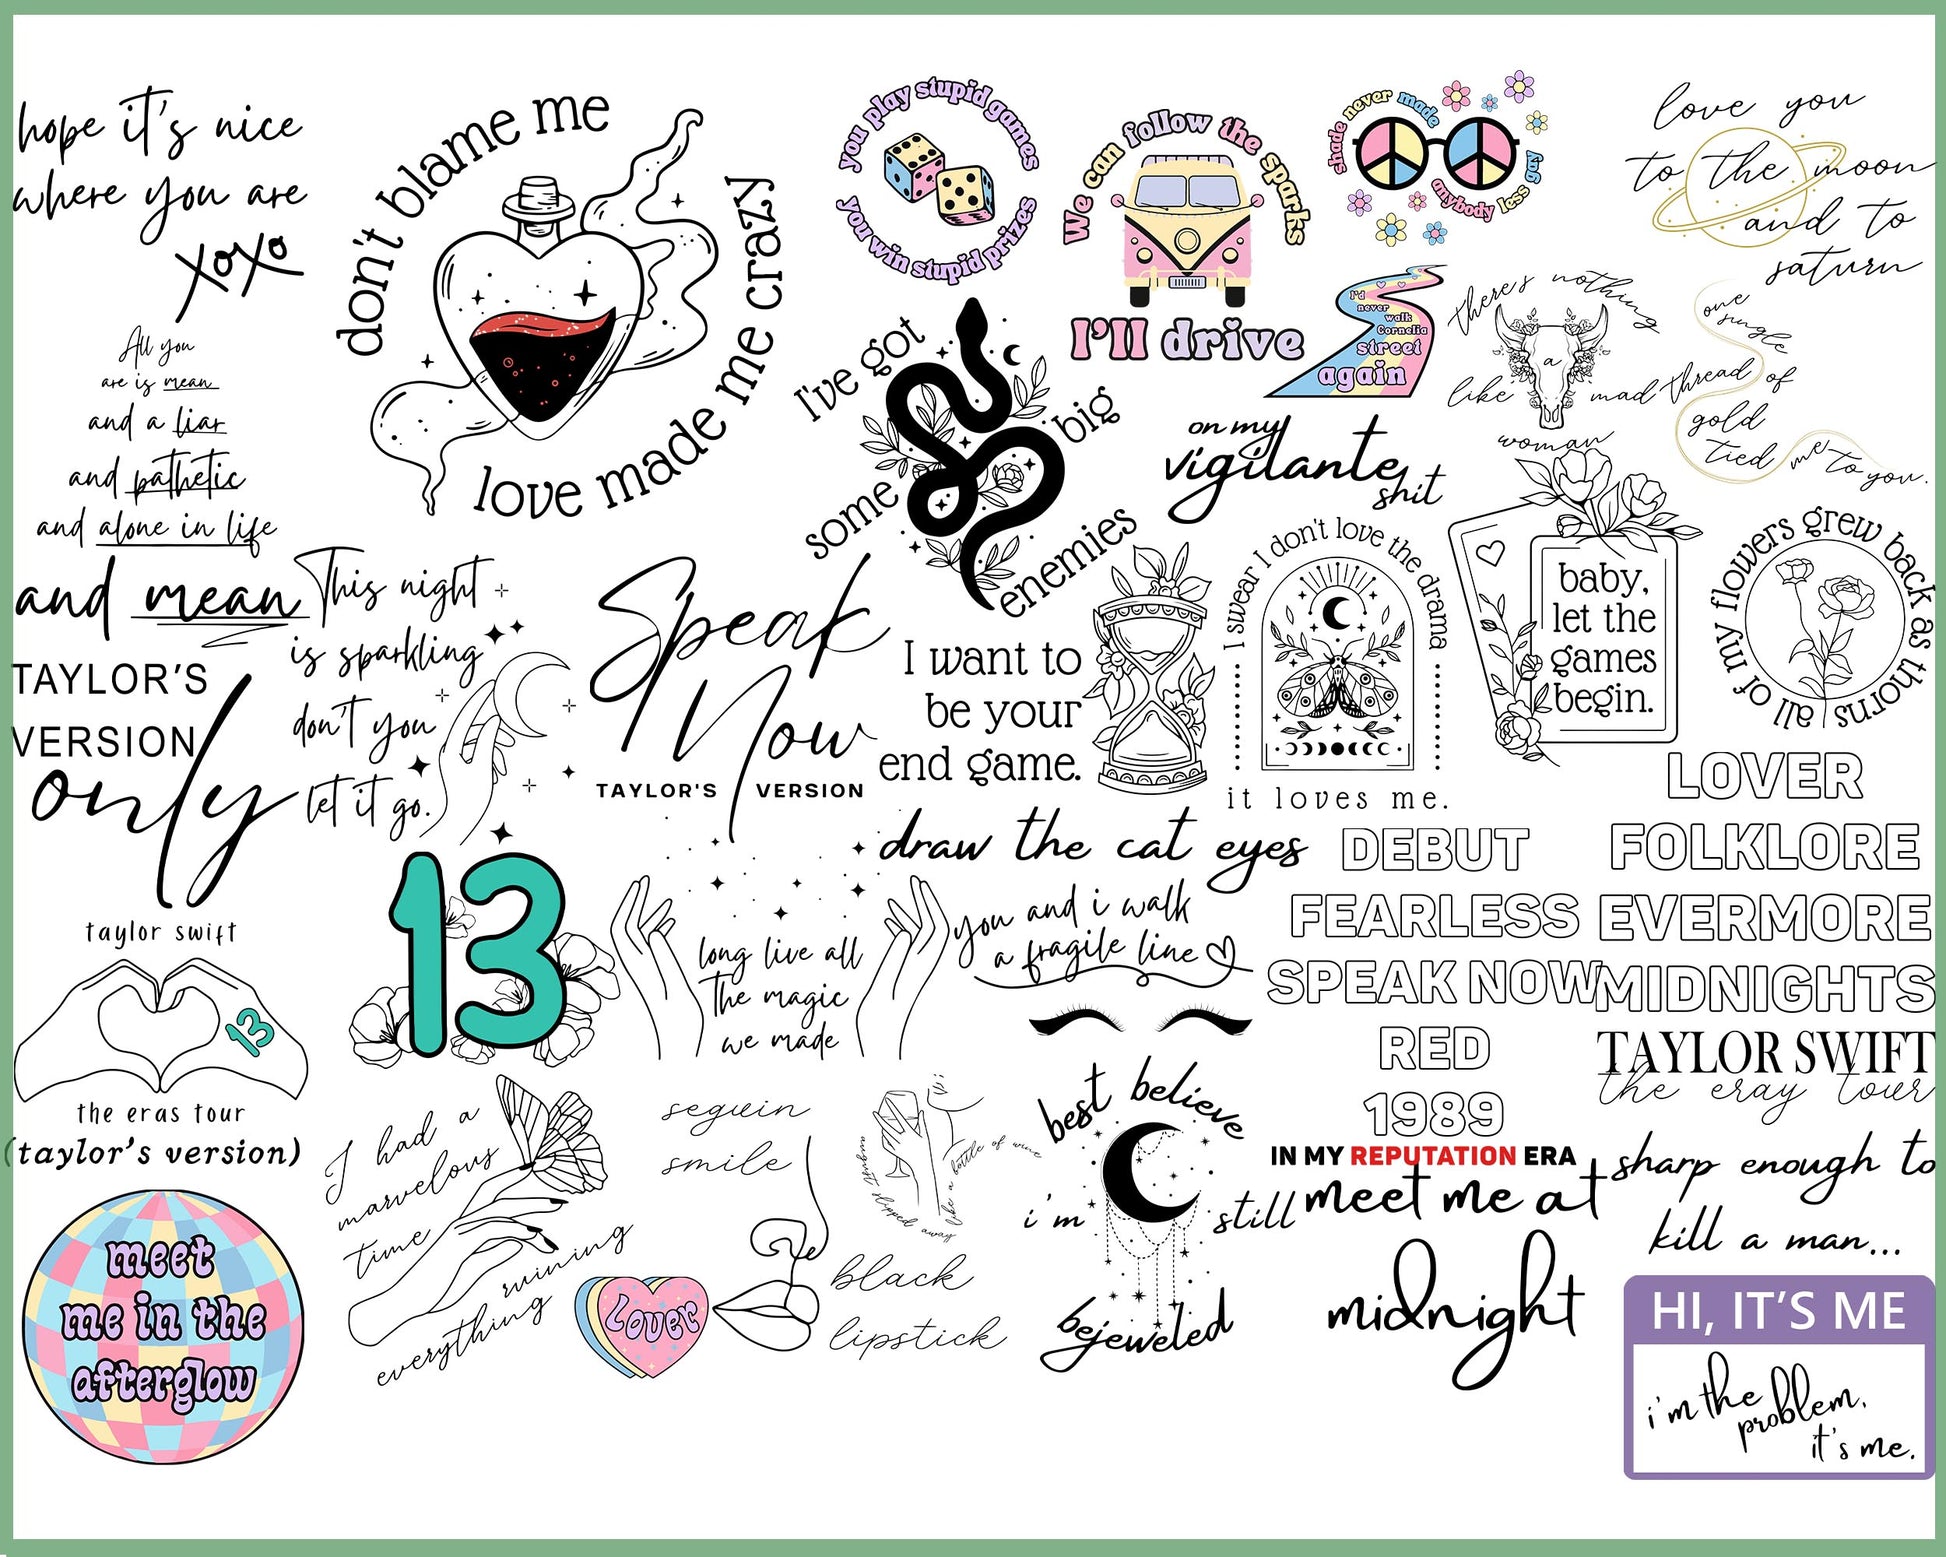 hope it's nice
where you are
xoxo
don't blame me
love made me crazy
you play stupid games
you win stupid prizes
We can follow the sparks
I'll drive
shade never made
anybody less gay
love you
to the moon
and to
saturn
All you
are is mean
and a liar
and pathetic
and alone in life
and mean
I've got
some
big
enemies
I'd
never
walk
Cornelia
street
again
there's nothing
like a mad
woman
one
single
thread of
gold
tied me to you.
on my
vigilante
shit
TAYLOR'S
VERSION
only
This night
is sparkling
don't you
let it go.
Speak
Now
TAYLOR'S VERSION
I want to
be your
end game.
I swear I don't love the drama
it loves me.
baby,
let the
games
begin.
all of my flowers grew back as thorns
draw the cat eyes
LOVER
FOLKLORE
EVERMORE
MIDNIGHTS
DEBUT
FEARLESS
SPEAK NOW
RED
1989
IN MY REPUTATION ERA
TAYLOR SWIFT
the eray tour
taylor swift
13
the eras tour
(taylor's version)
13
long live all
the magic
we made
you and i walk
a fragile line
I had a
marvelous
time
ruining
everything
sequin
smile
black
lipstick
slipped away
like a bottle of wine
best believe
i'm still
bejeweled
meet me at
midnight
sharp enough to
kill a man...
meet
me in the
afterglow
Lover
HI, IT'S ME
i'm the
problem,
it's me.